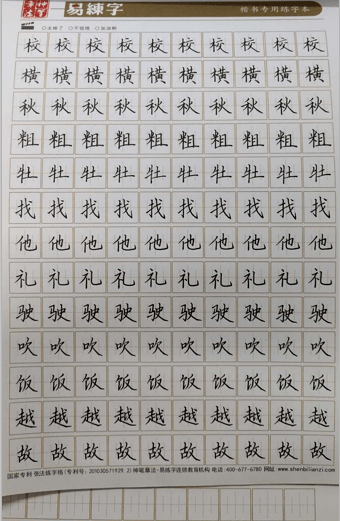 易練字 楷书专用练字本
校 校 校 校 校 校 校 校 校 校
横 横 横 横 横 横 横 横 横 横
秋 秋 秋 秋 秋 秋 秋 秋 秋 秋
粗 粗 粗 粗 粗 粗 粗 粗 粗 粗
牡 牡 牡 牡 牡 牡 牡 牡 牡 牡
找 找 找 找 找 找 找 找 找 找
他 他 他 他 他 他 他 他 他 他
礼 礼 礼 礼 礼 礼 礼 礼 礼 礼
驶 驶 驶 驶 驶 驶 驶 驶 驶 驶
吹 吹 吹 吹 吹 吹 吹 吹 吹 吹
饭 饭 饭 饭 饭 饭 饭 饭 饭 饭
越 越 越 越 越 越 越 越 越 越
故 故 故 故 故 故 故 故 故 故
国家专利 张法练字格(专利号: 201030571929. 2) 神笔章法·易练字连锁教育机构 电话: 400-677-6780 网址: www.shenbilianzi.com